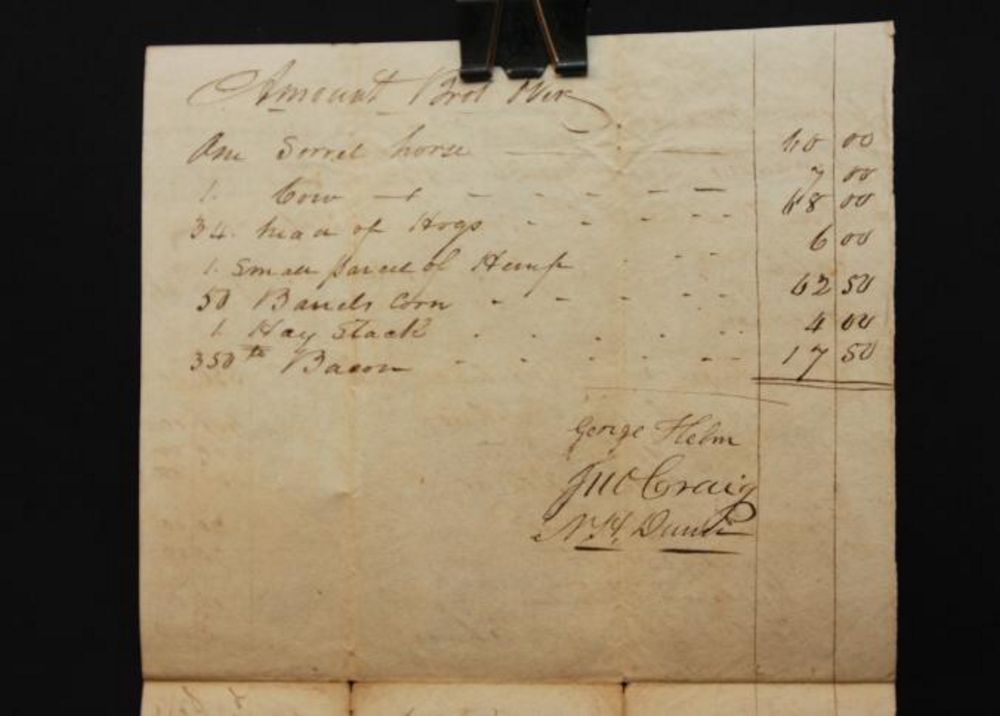 Amount Brot Over
One Sorrel horse 60 00
1. Cow 7 00
34. head of Hogs 68 00
1. Small parcel of Hemp 6 00
50 Barrels Corn 62 50
1. Hay Stack 4 00
350 lb Bacon 17 50
George Helm
Jno Craig
N. H. Dunn